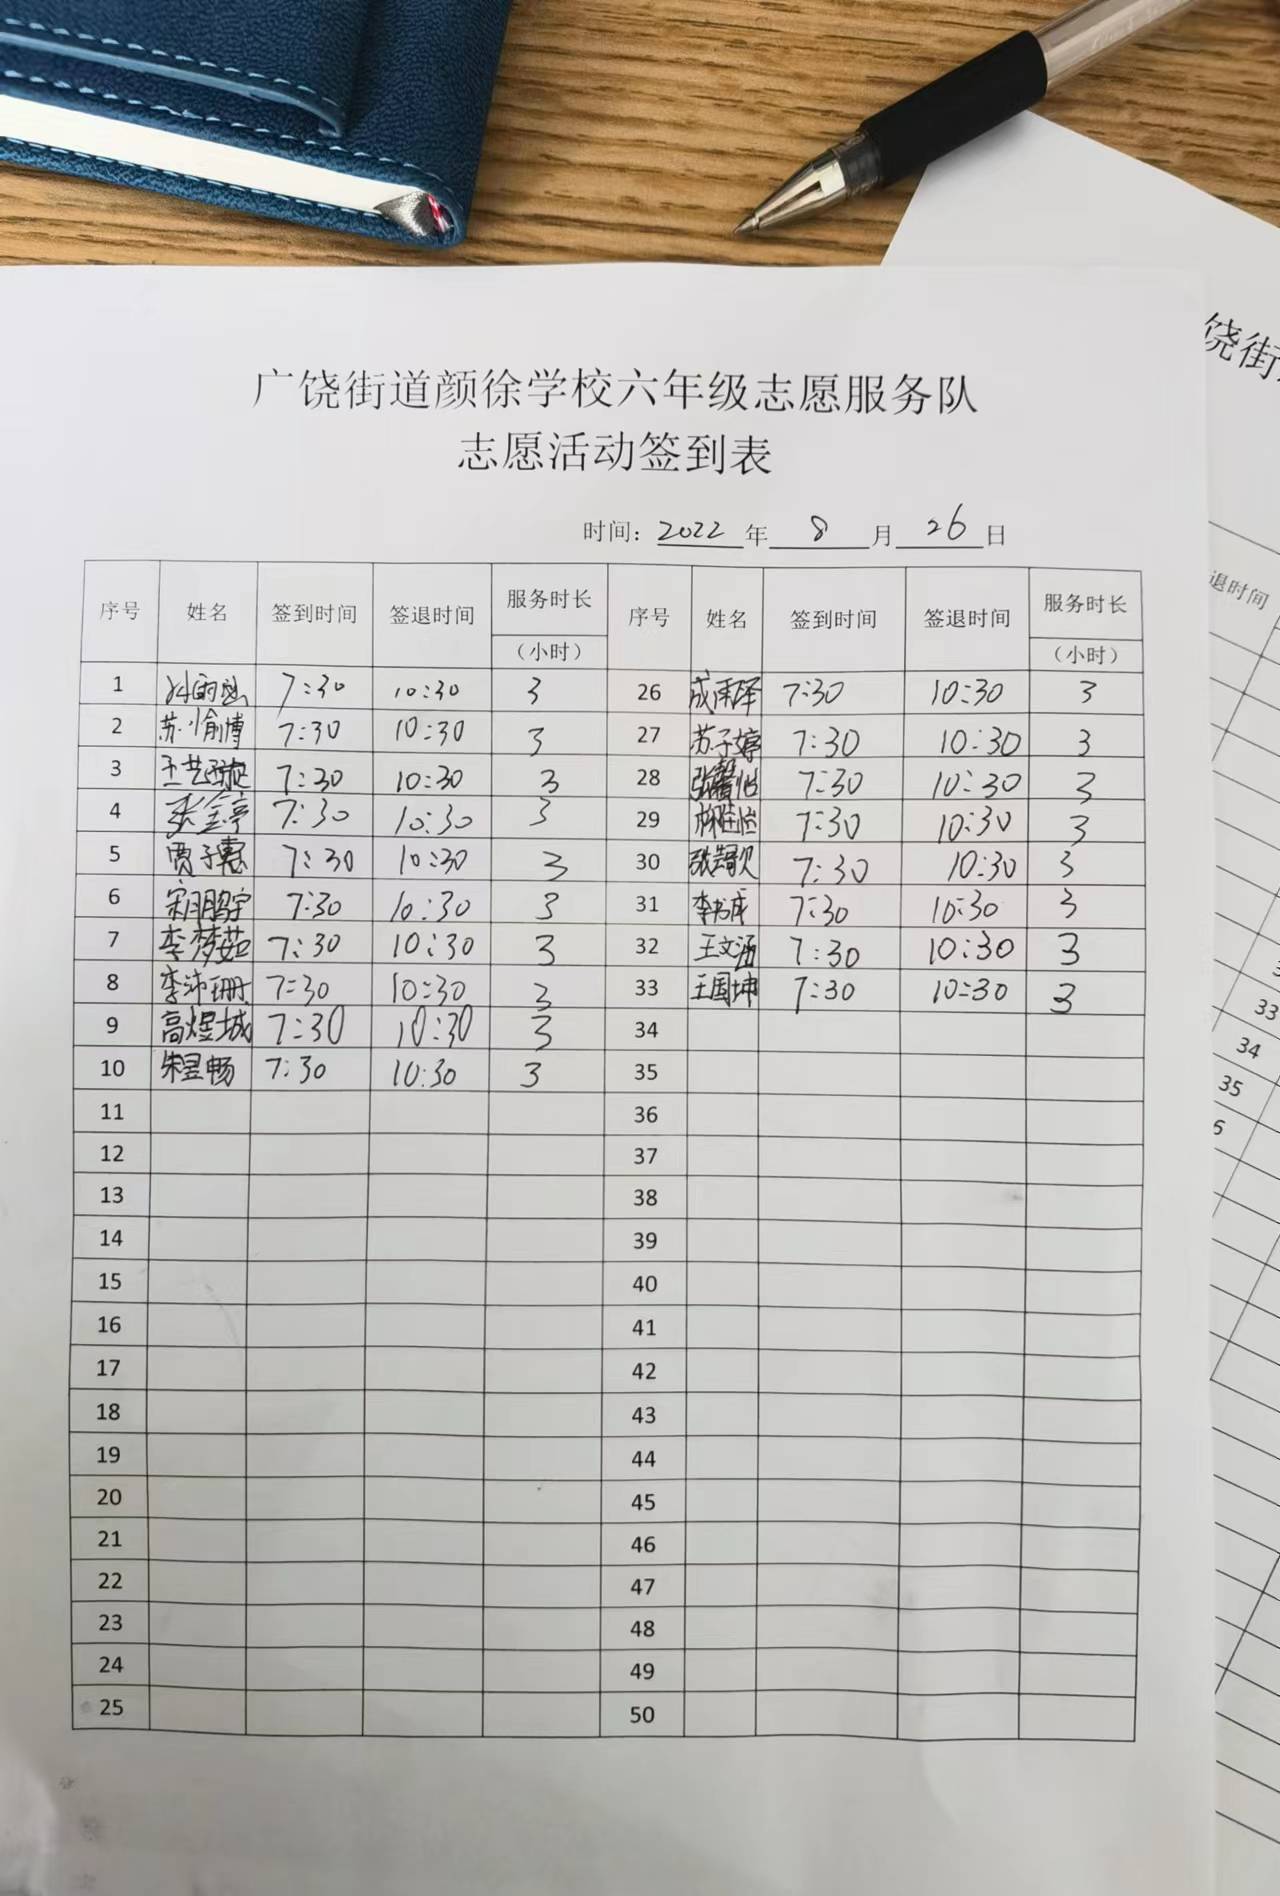 广饶街道颜徐学校六年级志愿服务队
志愿活动签到表
时间：2022年8月26日
序号 姓名 签到时间 签退时间 服务时长（小时） 序号 姓名 签到时间 签退时间 服务时长（小时）
1 7:30 10:30 3 26 成雨泽 7:30 10:30 3
2 苏愉博 7:30 10:30 3 27 苏子婷 7:30 10:30 3
3 王艺璇 7:30 10:30 3 28 张馨怡 7:30 10:30 3
4 张金亭 7:30 10:30 3 29 7:30 10:30 3
5 贾子惠 7:30 10:30 3 30 7:30 10:30 3
6 宋鹏宇 7:30 10:30 3 31 李书成 7:30 10:30 3
7 李梦茹 7:30 10:30 3 32 王文涵 7:30 10:30 3
8 李沛珊 7:30 10:30 3 33 王国坤 7:30 10:30 3
9 高煜城 7:30 10:30 3 34
10 朱昱畅 7:30 10:30 3 35
11 36
12 37
13 38
14 39
15 40
16 41
17 42
18 43
19 44
20 45
21 46
22 47
23 48
24 49
25 50
饶街
退时间
33
34
35